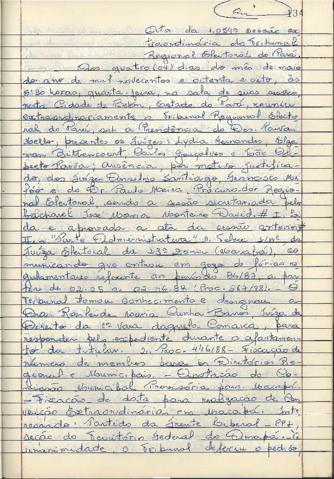 134
Ata da 1.089ª sessão ex
traordinária do Tribunal
Regional Eleitoral do Pará.
Aos quatro (04) dias do mês de maio
do ano de mil novecentos e oitenta e oito, às
horas, quarta-feira, na sala de suas sessões,
nesta Cidade de Belém, Estado do Pará, reuniu
extraordinariamente o Tribunal Regional Eleito
ral do Pará, sob a Presidência do Des.
presentes os Juízes Lydia Fernandes,
Bittencourt, Gonçalves e
ausência, por motivo justifica
do, dos Juízes Santiago, Francisco
e do Dr. Paulo Meira, Procurador Regio
nal Eleitoral, sendo a sessão secretariada pelo
bacharel José Maria Monteiro David. # I. Li
da e aprovada a ata da sessão anterior #
II. "Parte Administrativa" 1. Telex s/nº da
Juíza Eleitoral da 23ª Zona (Marabá), co
municando que entrou em gozo de férias re
gulamentares referente ao período 86/87, a par
tir de 02.05 a (Proc. 567/88). - O
Tribunal tomou conhecimento e designou a
Dra. Maria Cunha Barros Juíza de
Direito da 1ª Vara daquela Comarca, para
responder pelo expediente durante o afastamen
to da titular. 2. Proc. 416/88 - Fixação de
número de membros para os Diretórios Re
gional e Municipais. - Constituição de Co
missão Municipal Provisória para Macapá.
- Fixação de data para realização de Con
venção Extraordinária em Macapá. Inte
ressado: Partido da Frente Liberal - PFL,
seção do Território Federal do Amapá. - À
unanimidade, o Tribunal deferiu o pedido,